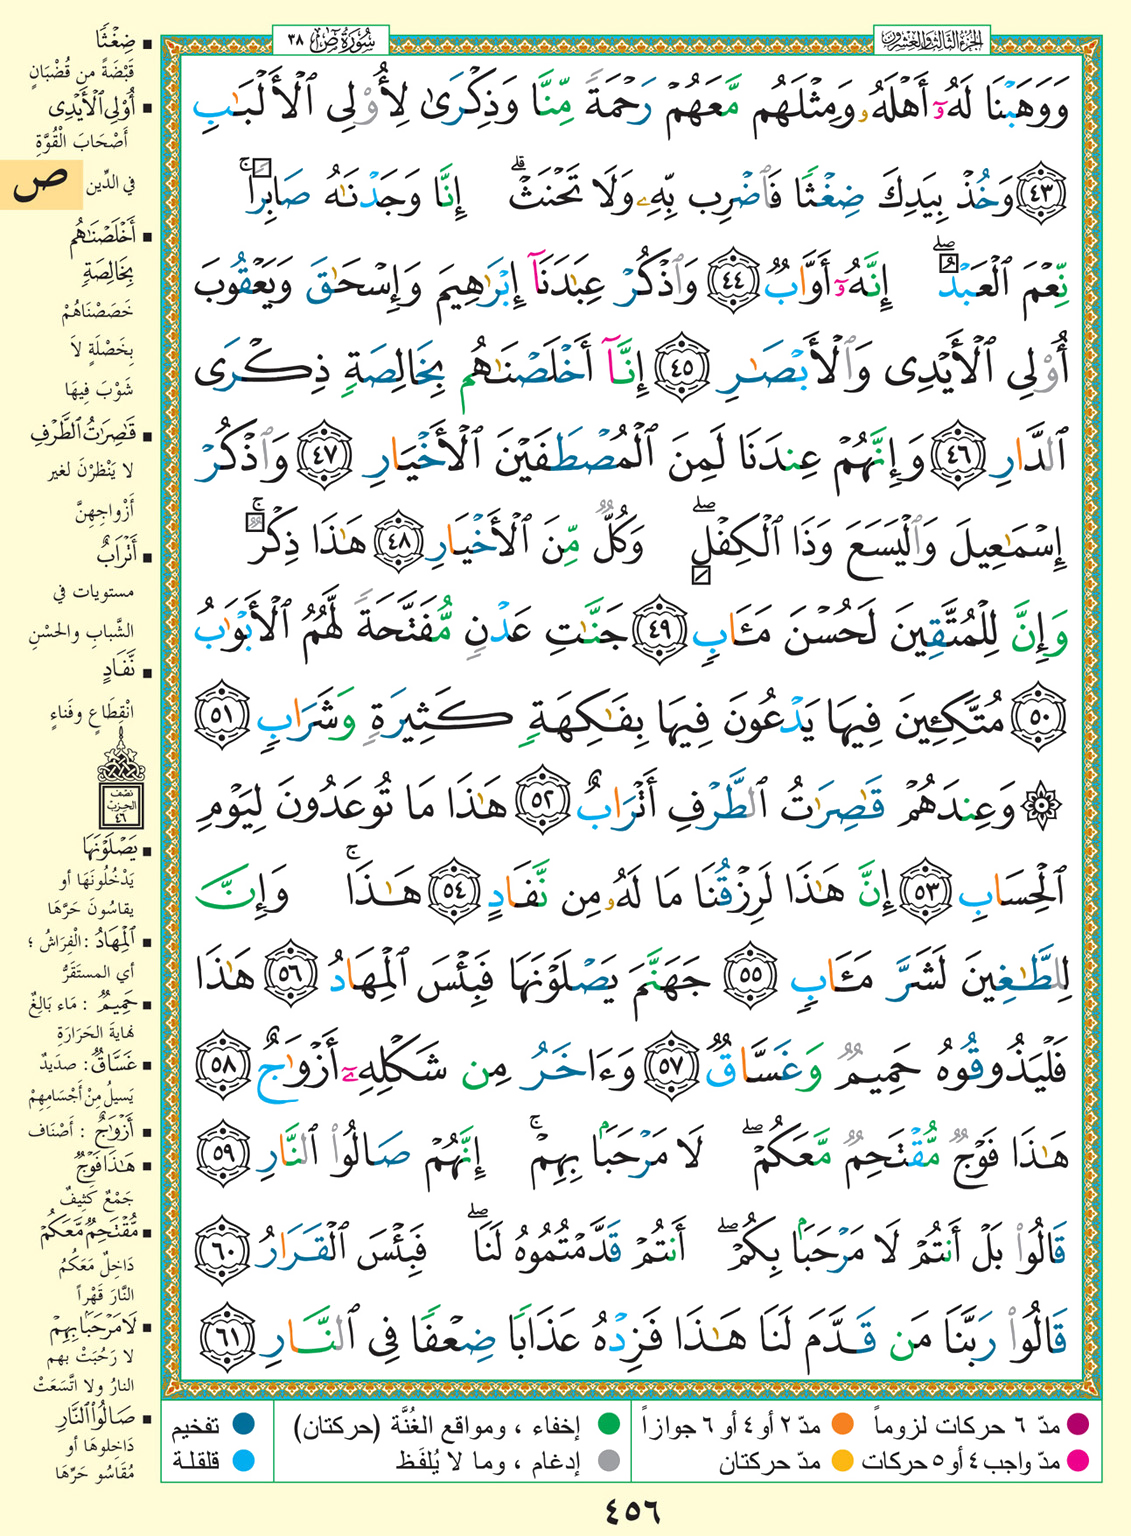 الجزء الثالث والعشرون
سورة ص ٣٨
وَوَهَبْنَا لَهُۥٓ أَهْلَهُۥ وَمِثْلَهُم مَّعَهُمْ رَحْمَةً مِّنَّا وَذِكْرَىٰ لِأُو۟لِى ٱلْأَلْبَـٰبِ
٤٣ وَخُذْ بِيَدِكَ ضِغْثًا فَٱضْرِب بِّهِۦ وَلَا تَحْنَثْ ۗ إِنَّا وَجَدْنَـٰهُ صَابِرًا ۚ
نِّعْمَ ٱلْعَبْدُ ۖ إِنَّهُۥٓ أَوَّابٌ ٤٤ وَٱذْكُرْ عِبَـٰدَنَآ إِبْرَٰهِيمَ وَإِسْحَـٰقَ وَيَعْقُوبَ
أُو۟لِى ٱلْأَيْدِى وَٱلْأَبْصَـٰرِ ٤٥ إِنَّآ أَخْلَصْنَـٰهُم بِخَالِصَةٍ ذِكْرَى
ٱلدَّارِ ٤٦ وَإِنَّهُمْ عِندَنَا لَمِنَ ٱلْمُصْطَفَيْنَ ٱلْأَخْيَارِ ٤٧ وَٱذْكُرْ
إِسْمَـٰعِيلَ وَٱلْيَسَعَ وَذَا ٱلْكِفْلِ ۖ وَكُلٌّ مِّنَ ٱلْأَخْيَارِ ٤٨ هَـٰذَا ذِكْرٌ ۚ
وَإِنَّ لِلْمُتَّقِينَ لَحُسْنَ مَـَٔابٍ ٤٩ جَنَّـٰتِ عَدْنٍ مُّفَتَّحَةً لَّهُمُ ٱلْأَبْوَٰبُ
٥٠ مُتَّكِـِٔينَ فِيهَا يَدْعُونَ فِيهَا بِفَـٰكِهَةٍ كَثِيرَةٍ وَشَرَابٍ ٥١
۞ وَعِندَهُمْ قَـٰصِرَٰتُ ٱلطَّرْفِ أَتْرَابٌ ٥٢ هَـٰذَا مَا تُوعَدُونَ لِيَوْمِ
ٱلْحِسَابِ ٥٣ إِنَّ هَـٰذَا لَرِزْقُنَا مَا لَهُۥ مِن نَّفَادٍ ٥٤ هَـٰذَا ۚ وَإِنَّ
لِلطَّـٰغِينَ لَشَرَّ مَـَٔابٍ ٥٥ جَهَنَّمَ يَصْلَوْنَهَا فَبِئْسَ ٱلْمِهَادُ ٥٦ هَـٰذَا
فَلْيَذُوقُوهُ حَمِيمٌ وَغَسَّاقٌ ٥٧ وَءَاخَرُ مِن شَكْلِهِۦٓ أَزْوَٰجٌ ٥٨
هَـٰذَا فَوْجٌ مُّقْتَحِمٌ مَّعَكُمْ ۖ لَا مَرْحَبًۢا بِهِمْ ۚ إِنَّهُمْ صَالُوا۟ ٱلنَّارِ ٥٩
قَالُوا۟ بَلْ أَنتُمْ لَا مَرْحَبًۢا بِكُمْ ۖ أَنتُمْ قَدَّمْتُمُوهُ لَنَا ۖ فَبِئْسَ ٱلْقَرَارُ ٦٠
قَالُوا۟ رَبَّنَا مَن قَدَّمَ لَنَا هَـٰذَا فَزِدْهُ عَذَابًا ضِعْفًا فِى ٱلنَّارِ ٦١
ضِغْثًا
قَبْضَةً من قُضْبَانٍ
أُو۟لِى ٱلْأَيْدِى
أَصْحَابَ الْقُوَّةِ
في الدِّين
ص
أَخْلَصْنَـٰهُم
بِخَالِصَةٍ
خَصَصْنَاهُمْ
بِخَصْلَةٍ لَا
شَوْبَ فِيهَا
قَـٰصِرَٰتُ ٱلطَّرْفِ
لا يَنْظرْنَ لغير
أَزْواجِهِنَّ
أَتْرَابٌ
مستويات في
الشَّبابِ والحسْنِ
نَّفَادٍ
انْقِطَاعٍ وفَناءٍ
نصف
الحزب
٤٦
يَصْلَوْنَهَا
يَدْخُلُونَهَا أو
يقاسُونَ حَرَّهَا
ٱلْمِهَادُ : الْفِرَاشُ ؛
أي المستَقَرُّ
حَمِيمٌ : مَاء بَالِغٌ
نهايةَ الحَرَارَةِ
غَسَّاقٌ : صدَيدٌ
يَسيلُ مِنْ أَجْسَامِهِمْ
أَزْوَٰجٌ : أَصْنَاف
هَـٰذَا فَوْجٌ
جَمْعٌ كَثِيفٌ
مُّقْتَحِمٌ مَّعَكُمْ
دَاخِلٌ مَعَكُمُ
النَّارَ قَهْراً
لَا مَرْحَبًۢا بِهِمْ
لا رَحُبَتْ بهم
النارُ ولا اتَّسَعَتْ
صَالُوا۟ ٱلنَّارِ
دَاخِلوهَا أو
مُقَاسُو حَرِّهَا
مدّ ٦ حركات لزوماً
مدّ ٢ أو ٤ أو ٦ جوازاً
إخفاء ، ومواقع الغُنَّة (حركتان)
تفخيم
مدّ واجب ٤ أو ٥ حركات
مدّ حركتان
إدغام ، وما لا يُلفَظ
قلقلة
٤٥٦